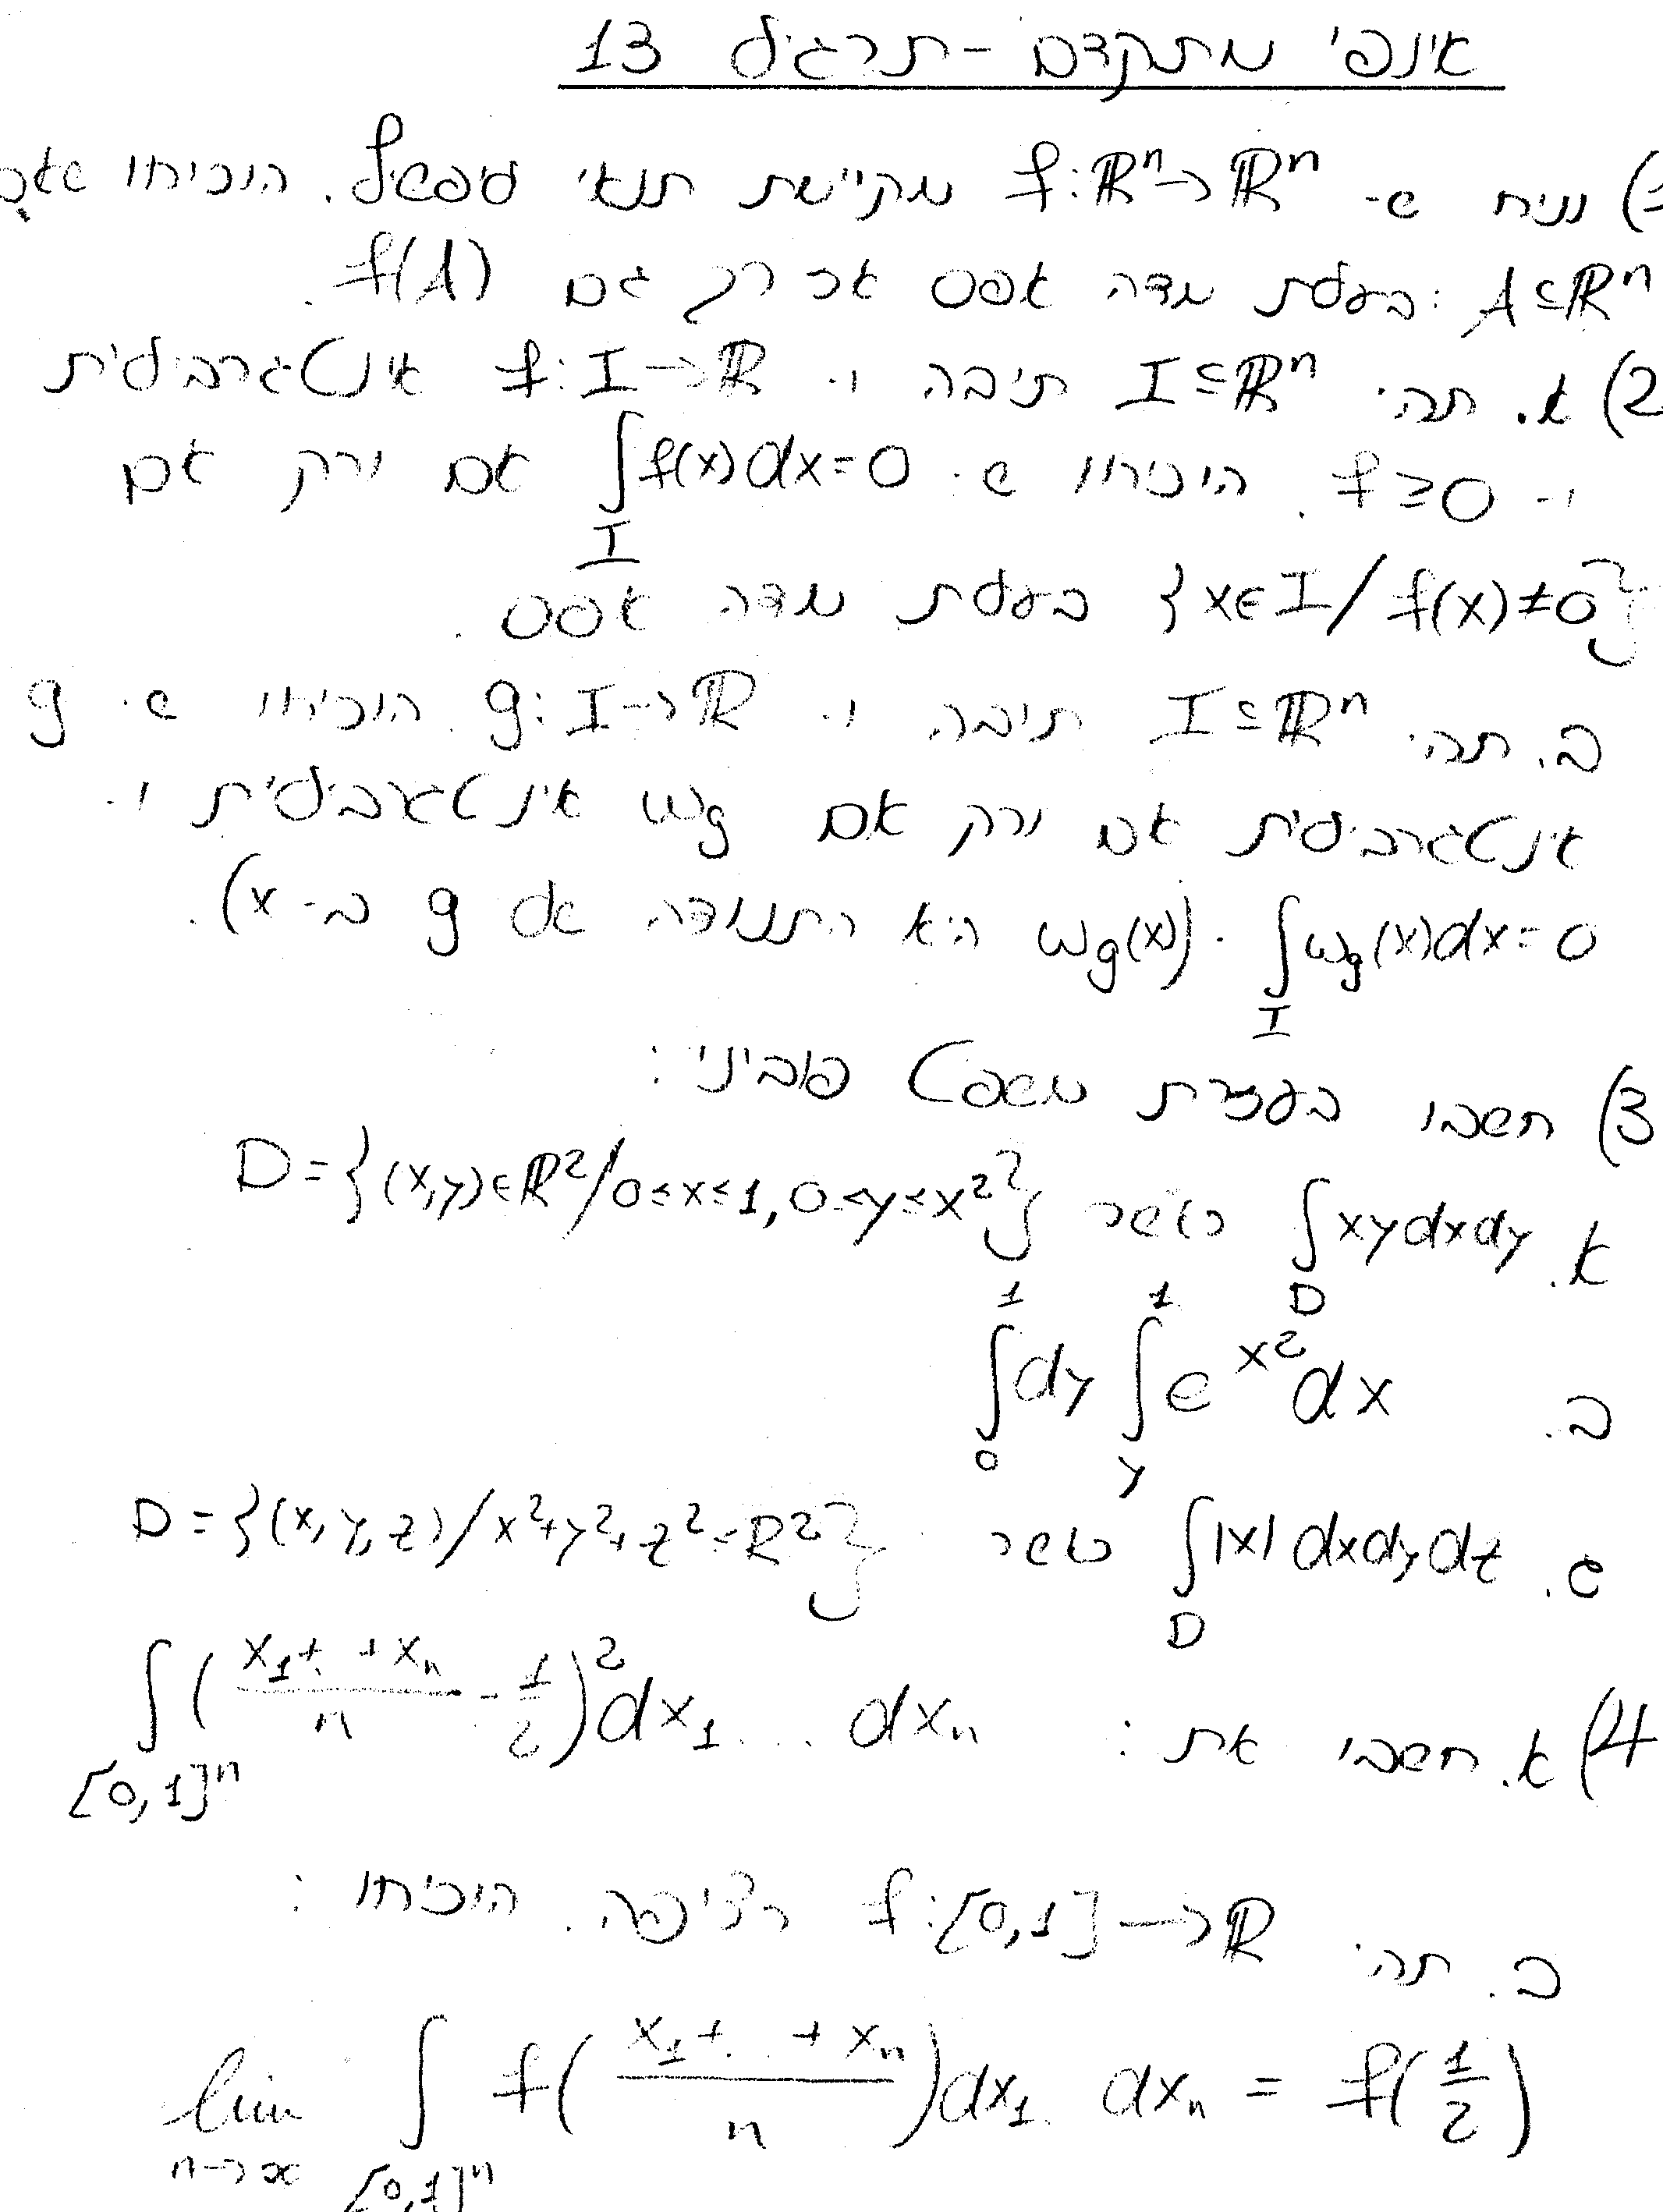 אינפי מתקדם - תרגיל 13
1) נניח ש- f:ℝⁿ→ℝⁿ מקיימת תנאי ליפשיץ. הוכיחו שאם
A⊆ℝⁿ בעלת מדה אפס אז כך גם f(A).
2) א. תהי I⊆ℝⁿ תיבה ו- f:I→ℝ אינטגרבילית
ו- f≥0. הוכיחו ש- ∫_I f(x)dx=0 אם ורק אם
{x∈I / f(x)≠0} בעלת מדה אפס.
ב. תהי I⊆ℝⁿ תיבה ו- g:I→ℝ. הוכיחו ש- g
אינטגרבילית אם ורק אם ω_g אינטגרבילית ו-
∫_I ω_g(x)dx=0. (ω_g(x) היא התנודה של g ב- x).
3) חשבו בעזרת משפט פוביני:
א. ∫_D xydxdy כאשר D={(x,y)∈ℝ²/0≤x≤1, 0≤y≤x²}
ב. ∫_0^1 dy ∫_y^1 e^{x²}dx
ג. ∫_D |x|dxdydz כאשר D={(x,y,z)/x²+y²+z²≤R²}
4) א. חשבו את: ∫_{[0,1]ⁿ} ((x₁+..+xₙ)/n - 1/2)² dx₁...dxₙ
ב. תהי f:[0,1]→ℝ רציפה. הוכיחו:
lim_{n→∞} ∫_{[0,1]ⁿ} f((x₁+..+xₙ)/n)dx₁ dxₙ = f(1/2)